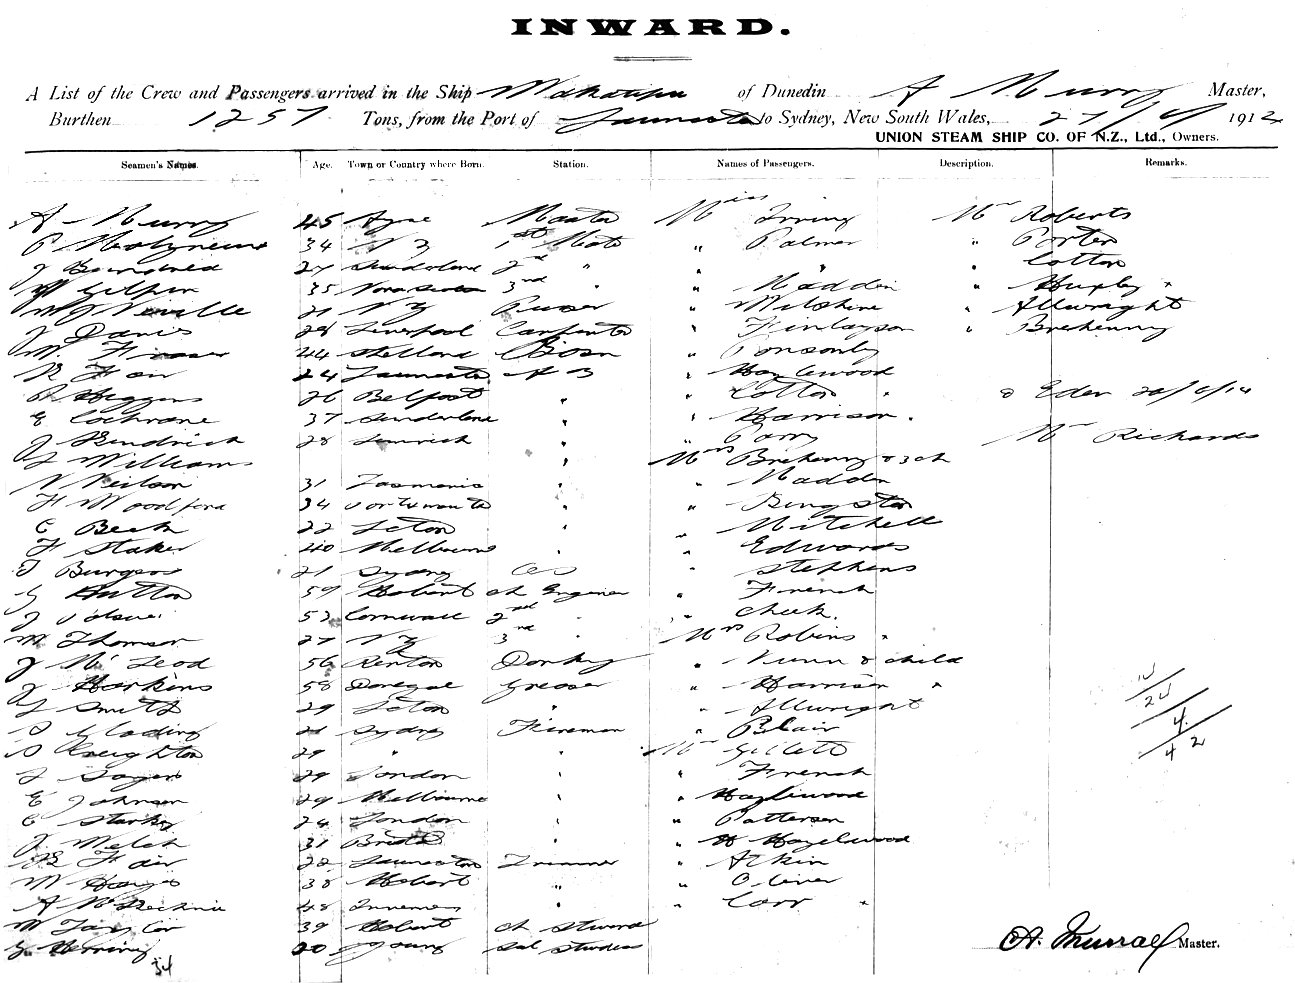 INWARD.
A List of the Crew and Passengers arrived in the Ship of Dunedin A Murray Master,
Burthen 1257 Tons, from the Port of Launceston to Sydney, New South Wales, 27/6/1912
UNION STEAM SHIP CO. OF N.Z., Ltd., Owners.
Seamen's Names. Age. Town or Country where Born. Station. Names of Passengers. Description. Remarks.
A Murray 45 Master Miss Irving Mr Roberts
P Molyneux 34 N Z 1st Mate " Palmer " Porter
27 Sunderland 2nd " " " " Cotton
W Gilpin 35 Nova Scotia 3rd " " Madden " Huxley "
Neville 21 N Z Purser " Wilshire " Allwright
J Davis 28 Liverpool Carpenter " Finlayson " Brehenny
M Fraser 44 Shetland Bosn " Ponsonby
R Fair 24 Launceston A B " Hazlewood
R Higgins 26 Belfast " " Cotton " Eden 20/6/12
E Cochrane 37 Sunderland " " Harrison
J Kendrick 28 Limerick " " Parry Mr Richards
J Williams " Mrs Brehenny & 3 ch
Neilson 31 Tasmania " " Madden
F Woodford 34 " " Kingston
C Beck 22 " " Mitchell
F Staker 40 Melbourne " " Edwards
T Burgess 21 Sydney " Stephens
G Hutton 59 Hobart ch Engineer " French
J 53 Cornwall 2nd " " Cheek.
M Thomson 27 N Z 3rd " Mrs Robins "
J McLeod 56 Renton Donkey " Nunn & child
J Harkins 58 Donegal Greaser " Harrison "
J Smith 29 " " Allwright
S Glading 21 Sydney Fireman " Blair
S Creighton 29 " " Mr Gillett
J Sayers 29 London " " French
E Johnson 29 Melbourne " " Hazlewood
C Starkey 24 London " " Patterson
J Welch 31 Bristol " " H Hazelwood
R Fair 22 Launceston Trimmer " Atkin
W Hayes 38 Hobart " " Oliver
A McKechnie 48 " " Carr "
M Taylor 39 Hobart ch steward
G Herring 20 sal steward
34
24
4
42
A. Murray Master.